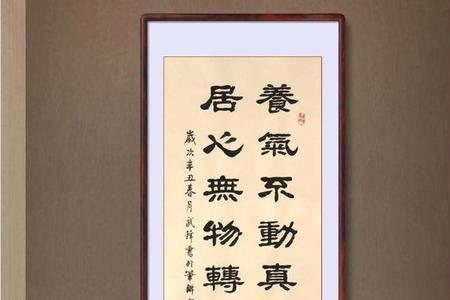 養氣不動真
居心無物轉
歲次辛丑春月武鋒書於筆耕